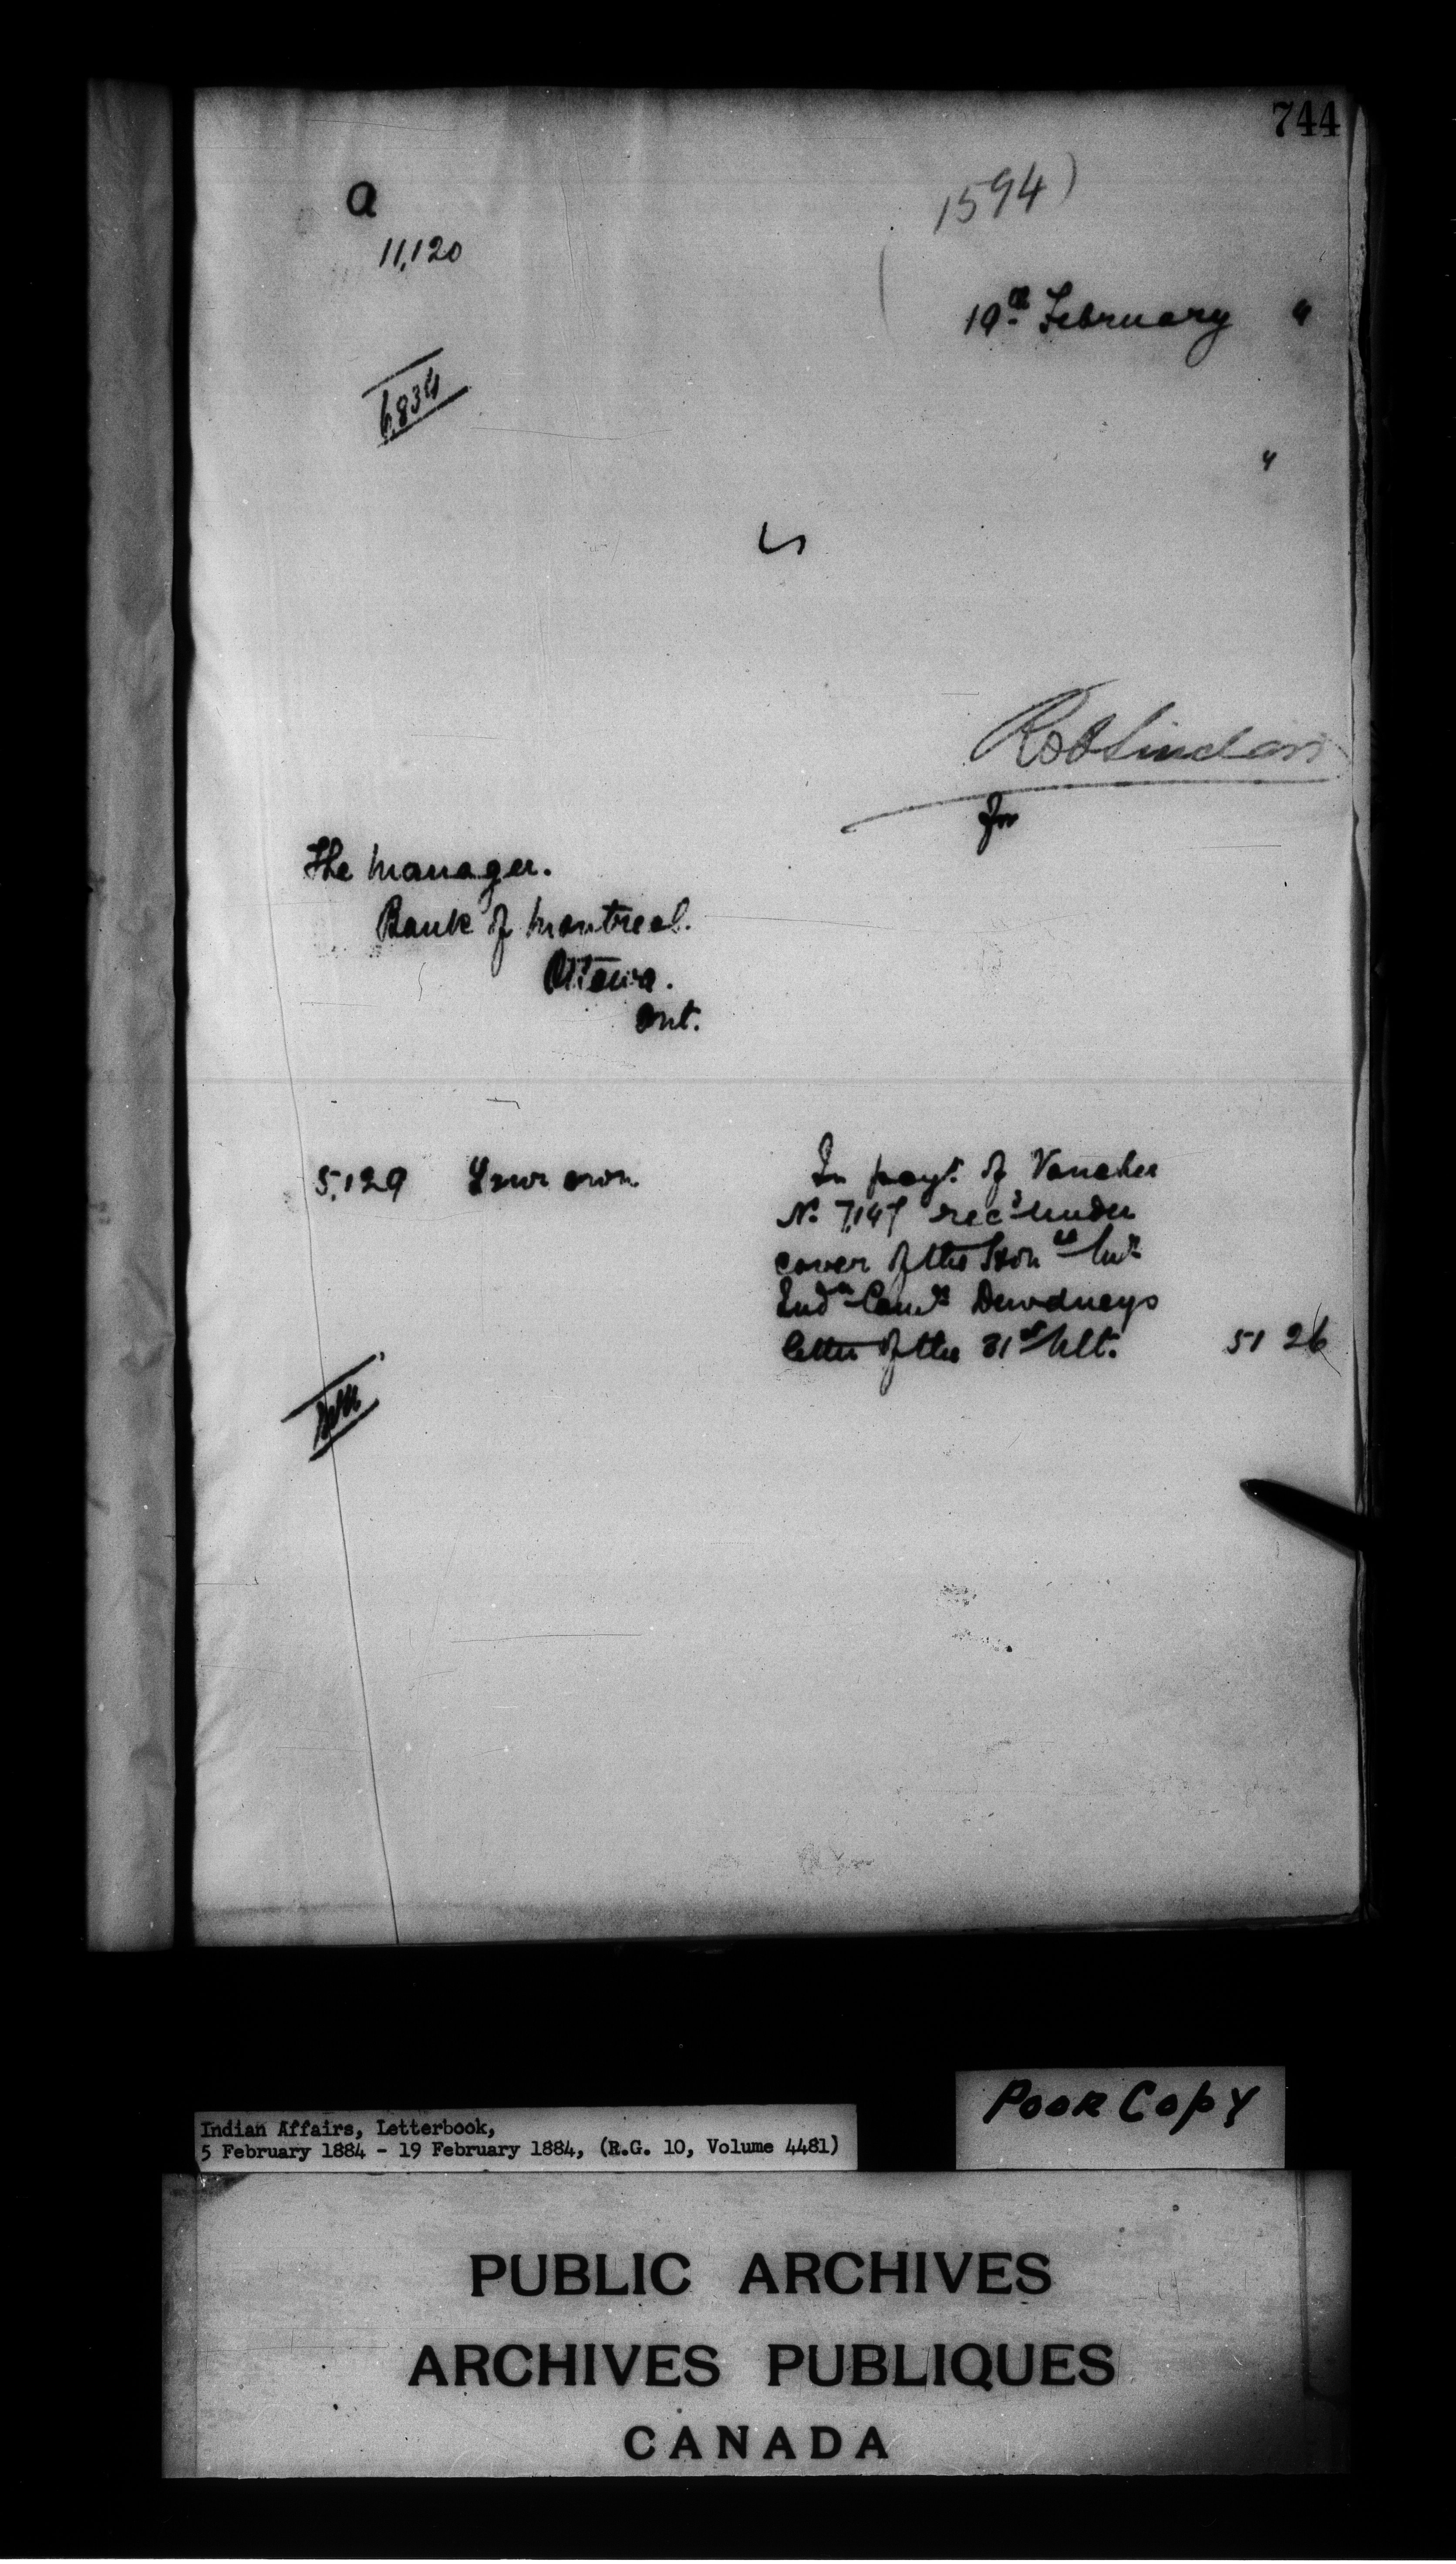 744
a
(1594)
11,120
19th February "
6,834
"
Rob Sinclair
for
The Manager.
Bank of Montreal.
Ottawa.
Ont.
5,129 Your own In payt. of Voucher
No. 7,147 recd under
cover of the Hon
Indn Comrs Dewdneys
letter of the 31st Ult. 51 26
Indian Affairs, Letterbook,
5 February 1884 - 19 February 1884, (R.G. 10, Volume 4481)
POOR COPY
PUBLIC ARCHIVES
ARCHIVES PUBLIQUES
CANADA